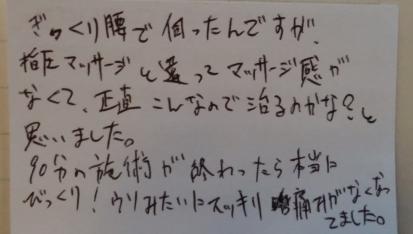 ぎっくり腰で伺ったんですが、
指圧マッサージと違ってマッサージ感が
なくて、正直こんなので治るのかな?と
思いました。
90分の施術が終わったら本当に
びっくり!ウソみたいにスッキリ痛みがなくなっ
てました。